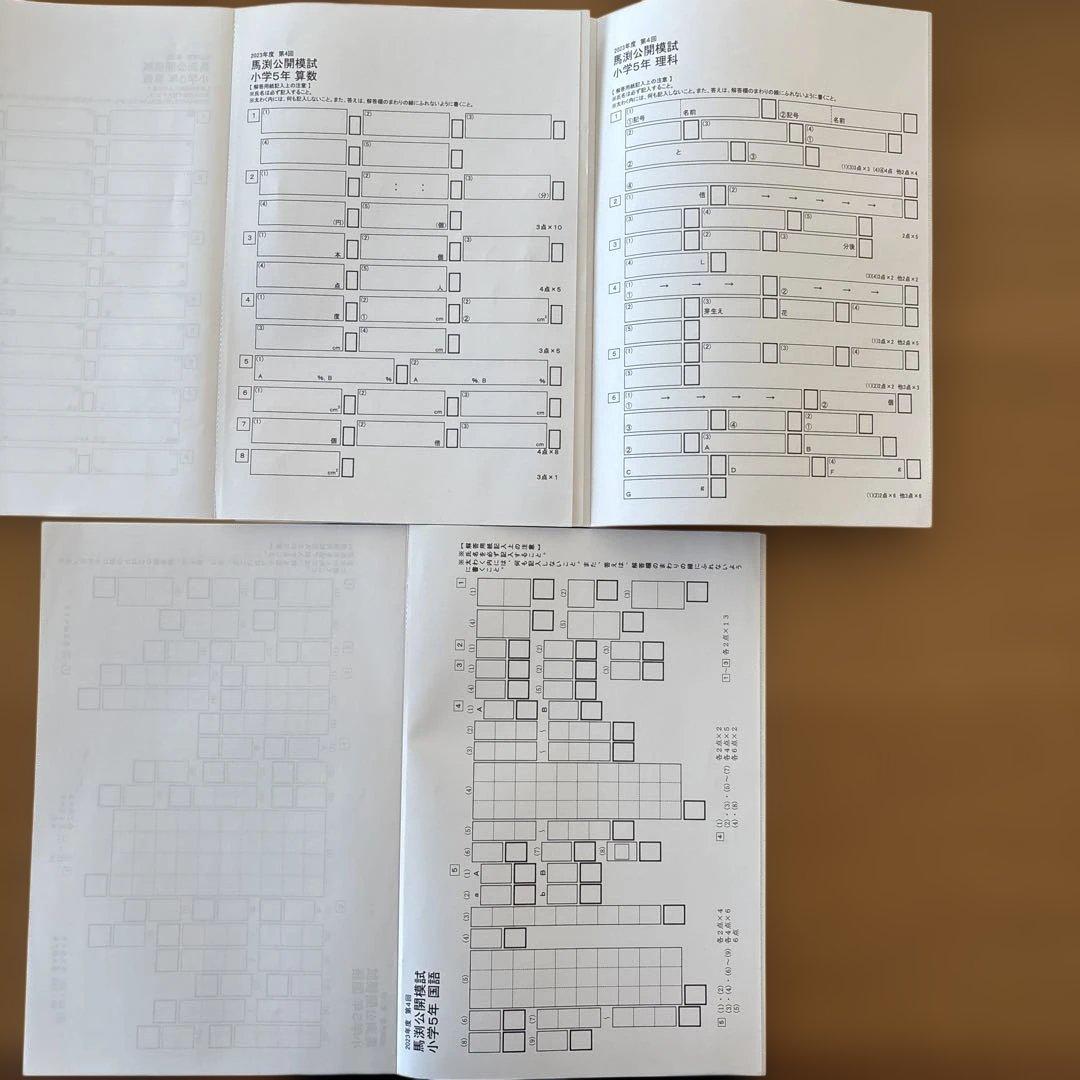 2023年度 第4回
馬渕公開模試
小学5年 算数
【 解答用紙記入上の注意 】
※氏名は必ず記入すること。
※太わく内には、何も記入しないこと。また、答えは、解答欄のまわりの線にふれないように書くこと。
1 (1) (2) (3)
(4) (5)
2 (1) (2) : : (3) (分)
(4) (円) (5) (個)
3点×10
3 (1) 本 (2) 個 (3)
(4) 点 (5) 人
4点×5
4 (1) 度 (2) ① cm (2) ② cm²
(3) cm (4) cm
3点×5
5 (1) A %, B % (2) A %, B %
6 (1) cm² (2) cm (3) cm
7 (1) 個 (2) 倍 (3) cm
4点×8
8 cm²
3点×1
2023年度 第4回
馬渕公開模試
小学5年 理科
【 解答用紙記入上の注意 】
※氏名は必ず記入すること。
※太わく内には、何も記入しないこと。また、答えは、解答欄のまわりの線にふれないように書くこと。
1 (1) ①記号 名前 ②記号 名前
(2) (3) (4) ①
② と ③
(1)(3)3点×3 (4)④4点 他2点×4
④
2 (1) 倍 (2) → → → → →
(3) (4) (5)
2点×5
3 (1) (2) (3) 分後
(4) L
(3)(4)3点×2 他2点×2
4 (1) ① → → → ② → → →
(2) (3) 芽生え 花 (4)
(5)
(1)3点×2 他2点×5
5 (1) (2) (3) (4)
(5)
(1)(2)2点×2 他3点×3
6 (1) ① → → → → ② 個
③ ④ (2) ①
(2) (3) A B
C D (4) F g
G g
(1)(2)2点×6 他3点×6
2023年度 第4回
馬渕公開模試
小学5年 国語
【解答用紙記入上の注意】
※氏名を必ず記入すること。
※太わく内には、何も記入しないこと。また、答えは、解答欄のまわりの線にふれないよう
に書くこと。
1 (1) (2) (3)
(4) (5)
2 (1) (2) (3)
3 (1) (2) (3)
(4) (5)
1~3 各2点×13
4 (1) A B
(2) ~
(3) ~
(4)
(5) ~
(6) (7) (8)
4 (1) 各2点×2
(2)・(3)・(5)~(7) 各4点×5
(4)・(8) 各6点×2
5 (1) A B
(2) a b
(3)
(4)
(5)
(6) (7) ~
(8) (9)
5 (1)・(2) 各2点×4
(3)・(4)・(6)~(9) 各4点×6
(5) 6点